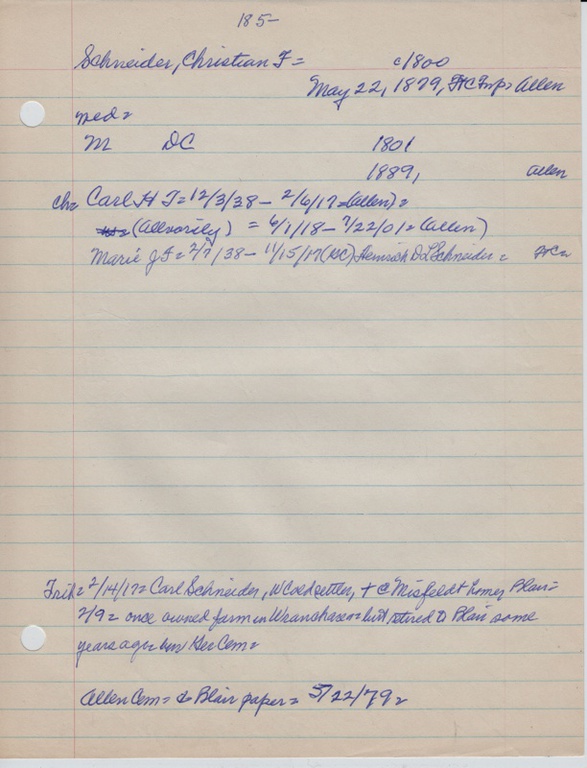 185-
Schneider, Christian F= c1800
May 22, 1879, Allen
med=
M DC 1801
1889, Allen
ch= Carl H F= 12/3/38- 2/6/17=(Allen)=
= 6/1/18- 7/22/01=(Allen)
Marie J F= 2/7/38- 11/15/17(HC) Heinrich D L Schneider= HC=
2/14/17= Carl Schneider, old settler, + C Misfeldt home, Blair=
2/9= once owned farm in but retired to Blair some
years ago= Ger Cem=
Allen Cem= & Blair paper= 5/22/79=